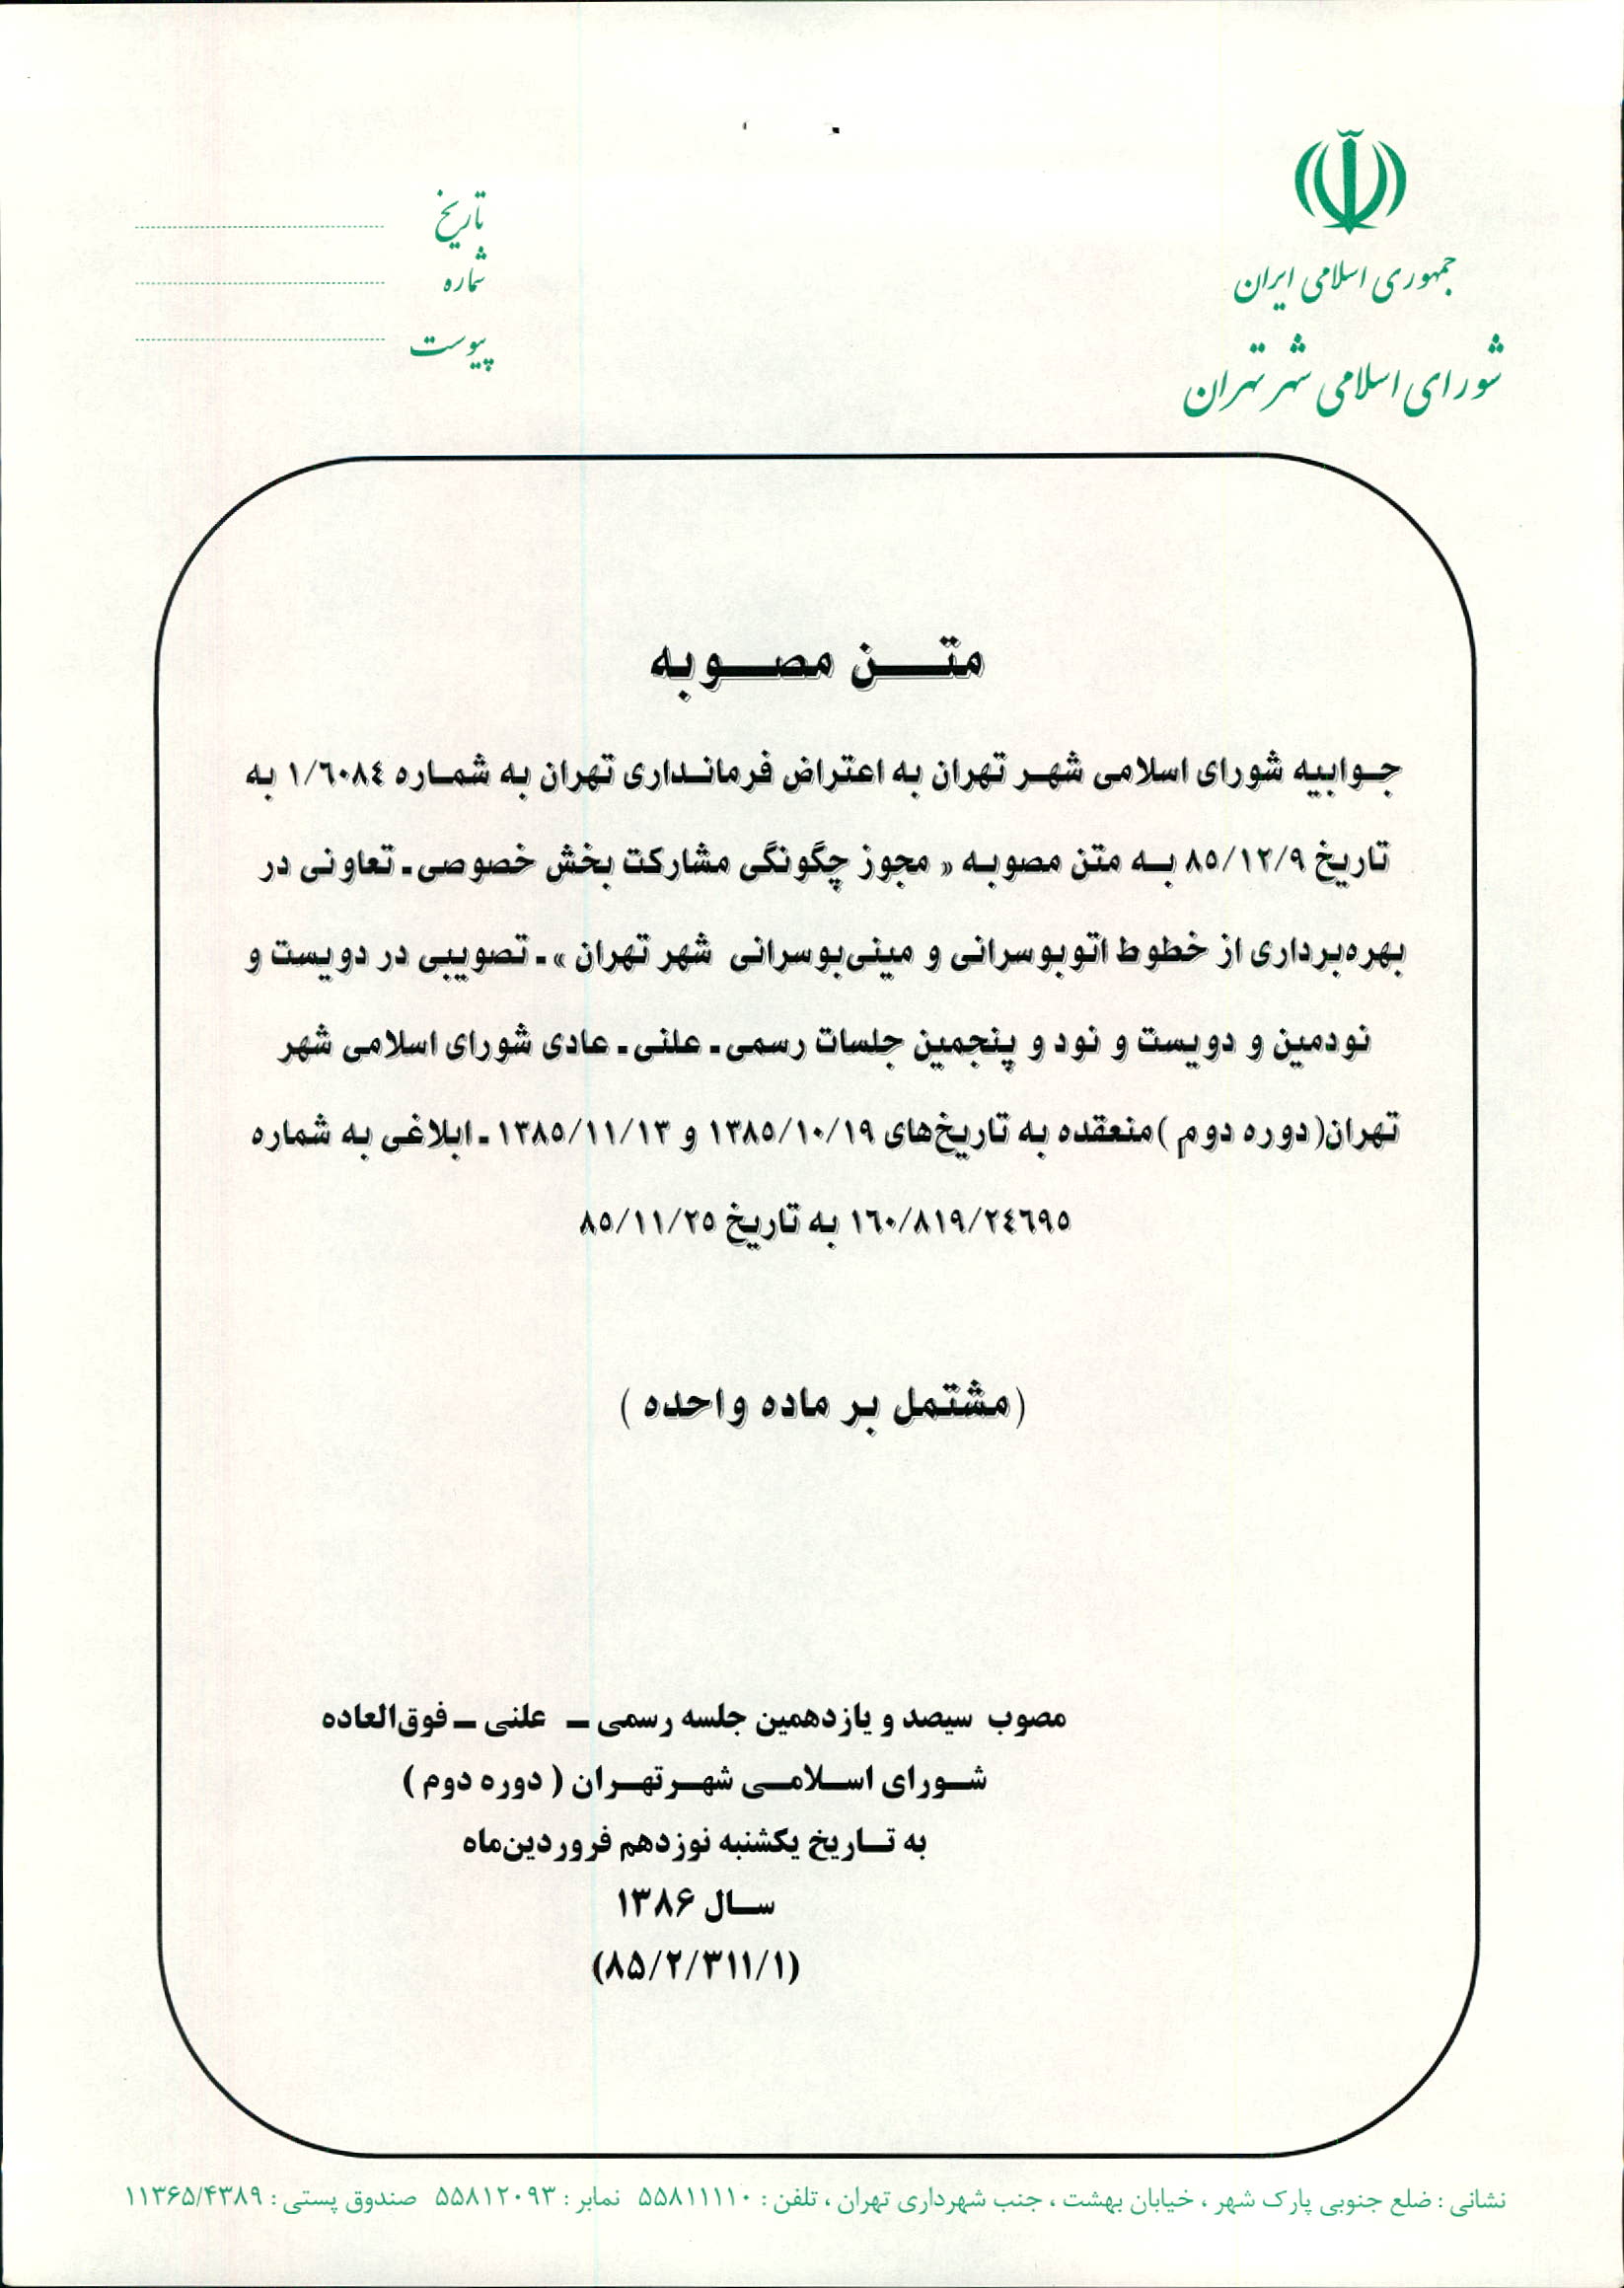 جمهوری اسلامی ایران
شورای اسلامی شهر تهران
تاریخ
شماره
پیوست
متن مصوبه
جوابیه شورای اسلامی شهر تهران به اعتراض فرمانداری تهران به شماره ۱/٦٠٨٤ به
تاریخ ۸٥/۱۲/۹ به متن مصوبه « مجوز چگونگی مشارکت بخش خصوصی ـ تعاونی در
بهره‌برداری از خطوط اتوبوسرانی و مینی‌بوسرانی شهر تهران » ـ تصویبی در دویست و
نودمین و دویست و نود و پنجمین جلسات رسمی ـ علنی ـ عادی شورای اسلامی شهر
تهران(دوره دوم )منعقده به تاریخ‌های ۱۳۸٥/۱۰/۱۹ و ۱۳۸٥/۱۱/۱۳ ـ ابلاغی به شماره
۱٦۰/۸۱۹/۲٤٦۹٥ به تاریخ ۸٥/۱۱/۲٥
(مشتمل بر ماده واحده )
مصوب سیصد و یازدهمین جلسه رسمی ـ علنی ـ فوق‌العاده
شورای اسلامی شهرتهران ( دوره دوم )
به تاریخ یکشنبه نوزدهم فروردین‌ماه
سال ۱۳۸۶
(۸۵/۲/۳۱۱/۱)
نشانی : ضلع جنوبی پارک شهر ، خیابان بهشت ، جنب شهرداری تهران ، تلفن : ۵۵۸۱۱۱۱۰ نمابر : ۵۵۸۱۲۰۹۳ صندوق پستی : ۱۱۳۶۵/۴۳۸۹